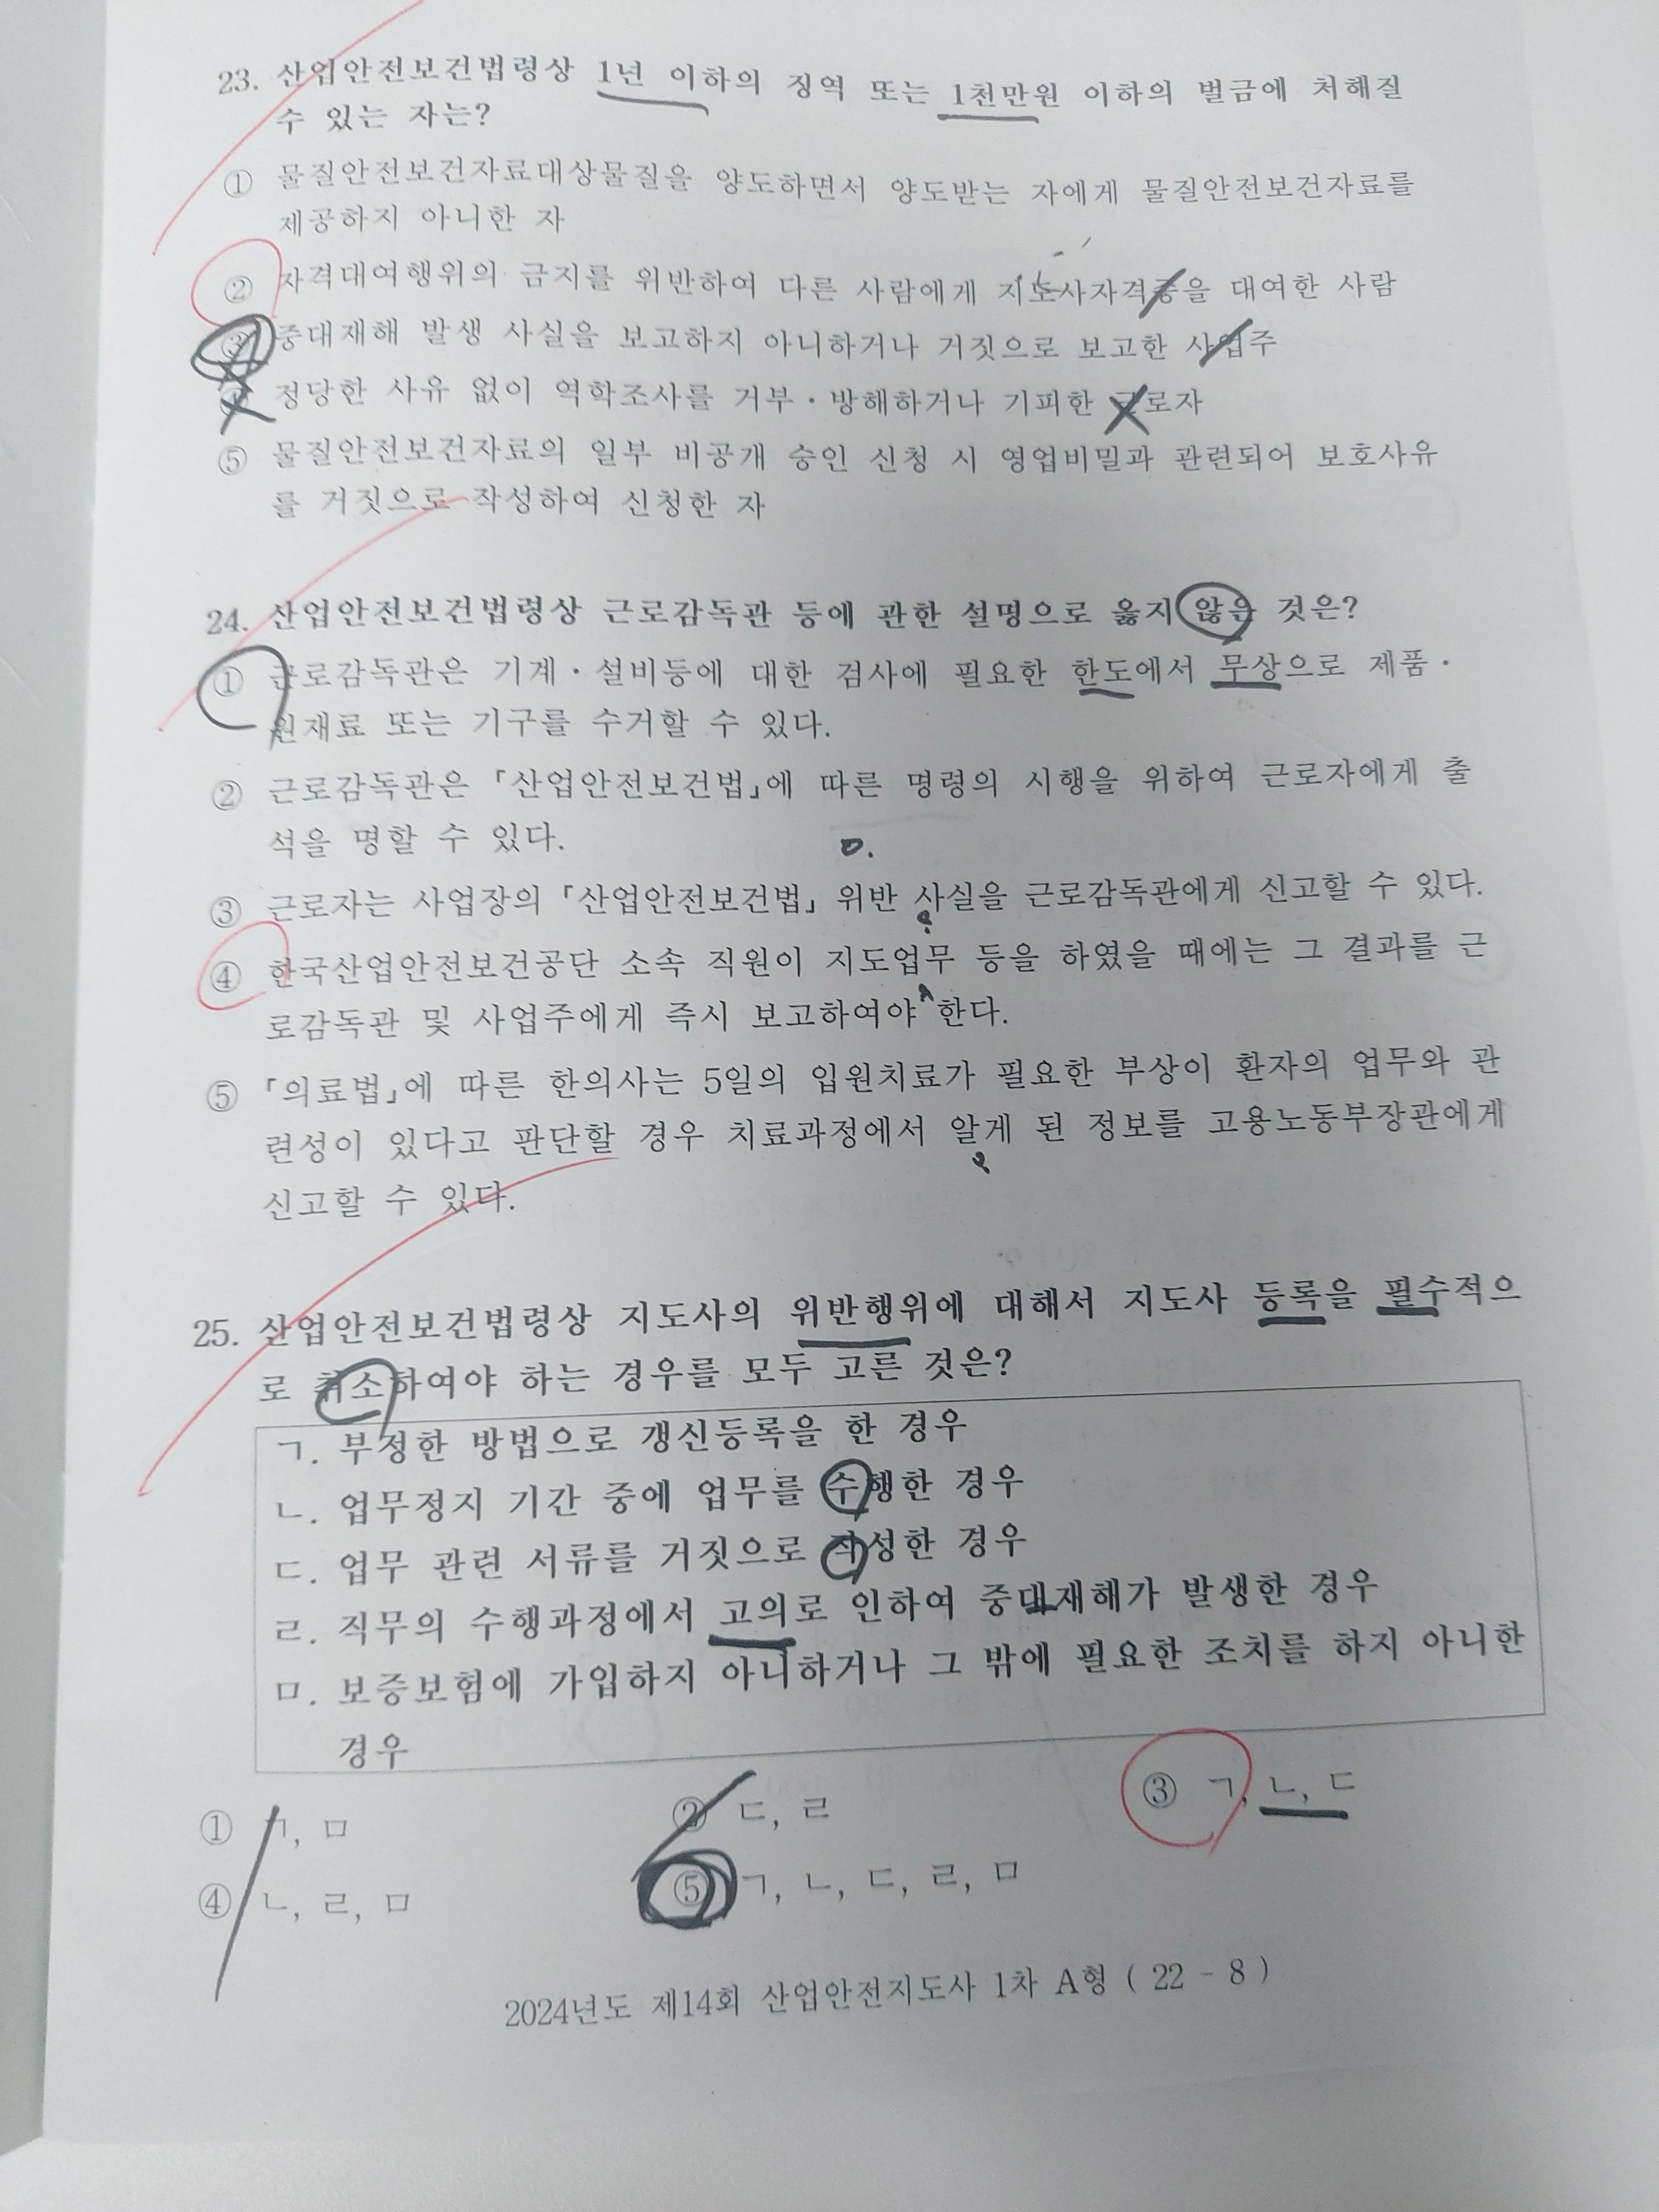 23. 산업안전보건법령상 1년 이하의 징역 또는 1천만원 이하의 벌금에 처해질
수 있는 자는?
① 물질안전보건자료대상물질을 양도하면서 양도받는 자에게 물질안전보건자료를
제공하지 아니한 자
② 자격대여행위의 금지를 위반하여 다른 사람에게 지도사자격증을 대여한 사람
③ 중대재해 발생 사실을 보고하지 아니하거나 거짓으로 보고한 사업주
④ 정당한 사유 없이 역학조사를 거부·방해하거나 기피한 근로자
⑤ 물질안전보건자료의 일부 비공개 승인 신청 시 영업비밀과 관련되어 보호사유
를 거짓으로 작성하여 신청한 자
24. 산업안전보건법령상 근로감독관 등에 관한 설명으로 옳지 않은 것은?
① 근로감독관은 기계·설비등에 대한 검사에 필요한 한도에서 무상으로 제품·
원재료 또는 기구를 수거할 수 있다.
② 근로감독관은 「산업안전보건법」에 따른 명령의 시행을 위하여 근로자에게 출
석을 명할 수 있다.
③ 근로자는 사업장의 「산업안전보건법」 위반 사실을 근로감독관에게 신고할 수 있다.
④ 한국산업안전보건공단 소속 직원이 지도업무 등을 하였을 때에는 그 결과를 근
로감독관 및 사업주에게 즉시 보고하여야 한다.
⑤ 「의료법」에 따른 한의사는 5일의 입원치료가 필요한 부상이 환자의 업무와 관
련성이 있다고 판단할 경우 치료과정에서 알게 된 정보를 고용노동부장관에게
신고할 수 있다.
25. 산업안전보건법령상 지도사의 위반행위에 대해서 지도사 등록을 필수적으
로 취소하여야 하는 경우를 모두 고른 것은?
ㄱ. 부정한 방법으로 갱신등록을 한 경우
ㄴ. 업무정지 기간 중에 업무를 수행한 경우
ㄷ. 업무 관련 서류를 거짓으로 작성한 경우
ㄹ. 직무의 수행과정에서 고의로 인하여 중대재해가 발생한 경우
ㅁ. 보증보험에 가입하지 아니하거나 그 밖에 필요한 조치를 하지 아니한
경우
① ㄱ, ㅁ ② ㄷ, ㄹ ③ ㄱ, ㄴ, ㄷ
④ ㄴ, ㄹ, ㅁ ⑤ ㄱ, ㄴ, ㄷ, ㄹ, ㅁ
2024년도 제14회 산업안전지도사 1차 A형 ( 22 - 8 )